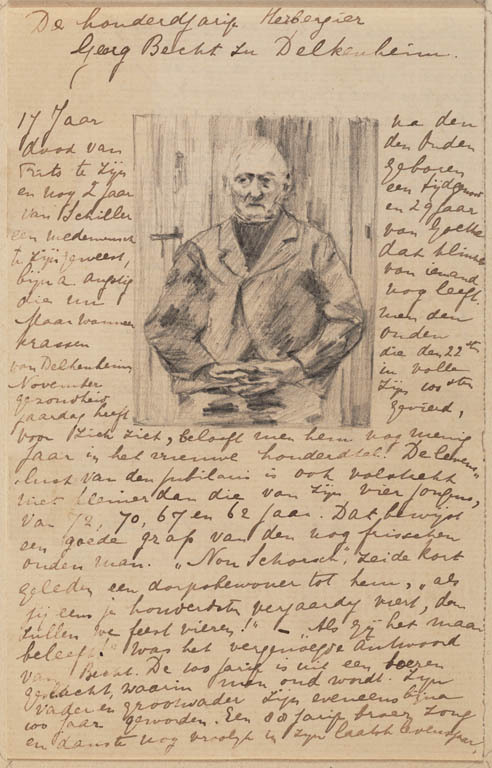 De honderdjarige Herbergier
Georg Becht zu Delkenheim.
17 Jaar na den
dood van den Ouden
Frits te zijn geboren
en nog 2 jaar een tijdgenoot
van Schiller en 29 jaar
een medemensch van Goethe
te zijn geweest, dat klinkt
bijna angstig van iemand
die nu nog leeft.
Maar wanneer men den
krassen ouden
van Delkenheim die den 22sten
November in volle
gezondheid zijn 100sten
jaardag heeft gevierd,
voor zich ziet, belooft men hem nog menig
jaar in het nieuwe honderdtal. De levens-
lust van den jubilaris is ook volstrekt
niet kleiner dan die van zijn vier jongens,
van 72, 70, 67 en 62 jaar. Dat bewijst
een goede grap van den nog frisschen
ouden man. "Non Schorsch", zeide kort
geleden een dorpsbewoner tot hem, "als
jij eens je honderdsten verjaardag viert, dan
zullen we feest vieren!" - "Als gij het maar
beleeft!" was het vergenoegde antwoord
van Becht. De 100 jarige is uit een boeren
geslacht, waarin men oud wordt. Zijn
vader en grootvader zijn eveneens bijna
100 jaar geworden. Een 88 jarige broer zong
en danste nog vroolijk in zijn laatste levensjaar,